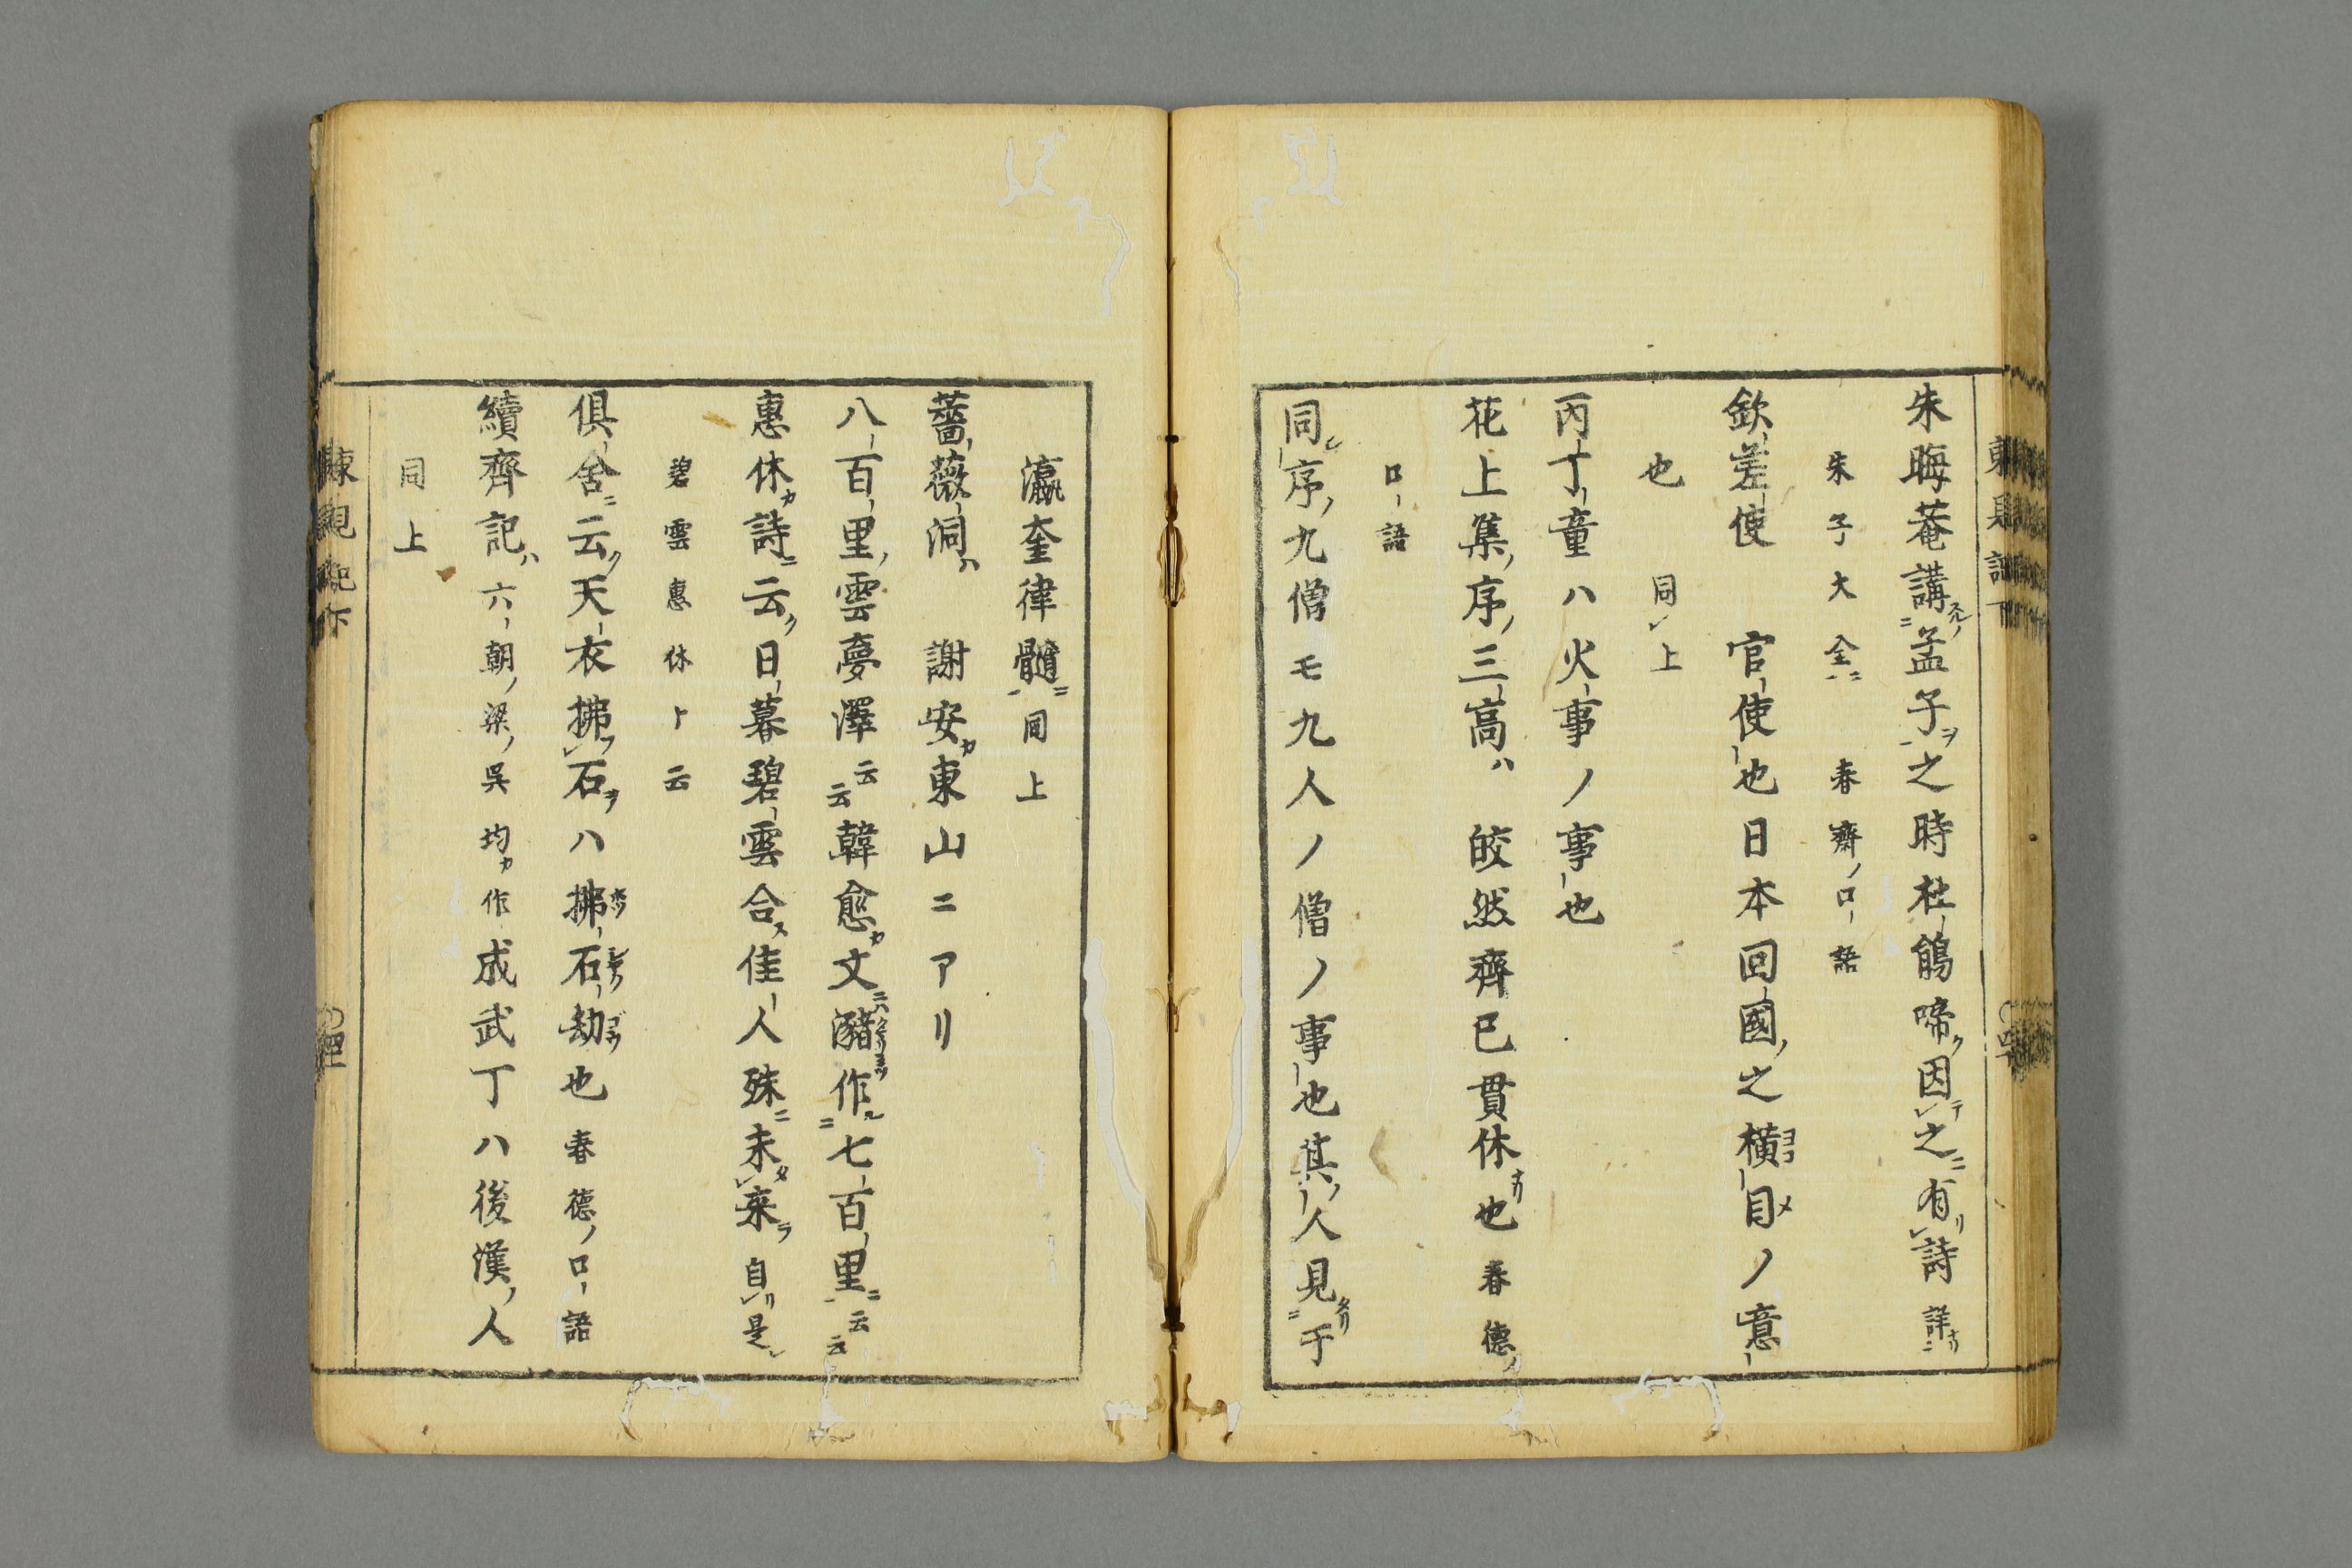 朱晦菴講孟子之時杜鵑啼因之有詩詳
朱子大全春齋ノ口語
欽差使　官使也日本回國之横目ノ意
也　同上
丙丁童ハ火事ノ事也
花上集序三高ハ　皎然齊已貫休也春德
口語
同序九僧モ九人ノ僧ノ事也其人見于
瀛奎律髓同上
薔薇洞　謝安東山ニアリ
八百里雲夢澤云云韓愈文瀦作七百里云云
惠休詩云日暮碧雲合佳人殊未来自是
碧雲惠休ト云
俱舍云天衣拂石ハ拂石劫也春德ノ口語
續齊記六朝ノ梁ノ呉均作成武丁ハ後漢ノ人
同上